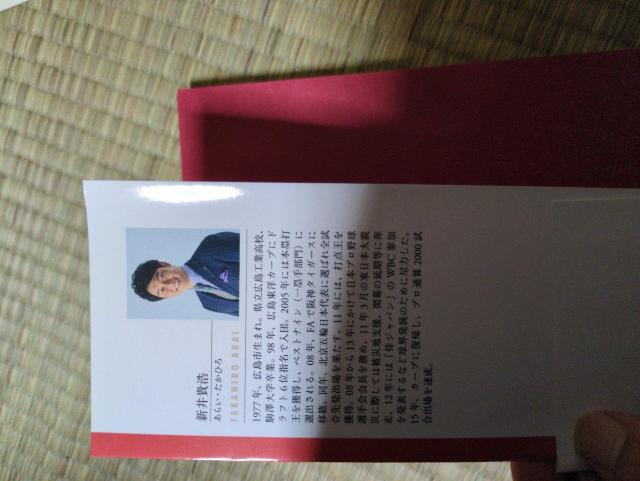 新井貴浩
あらい・たかひろ
TAKAHIRO ARAI
1977年、広島市生まれ。県立広島工業高校、
駒澤大学卒業。98年、広島東洋カープにド
ラフト6位指名で入団。2005年には本塁打
王を獲得し、ベストナイン（一塁手部門）に
選出される。08年、FAで阪神タイガースに
移籍。同年、北京五輪日本代表に選ばれ全試
合先発出場を果たす。11年には、打点王を
獲得。08年から13年にかけて日本プロ野球
選手会会長を務め、11年3月の東日本大震
災に際しては被災地支援、開幕の延期等に奔
走、12年には「侍ジャパン」のWBC参加
を発表するなど球界発展のために尽力した。
15年、カープに復帰し、プロ通算2000試
合出場を達成。